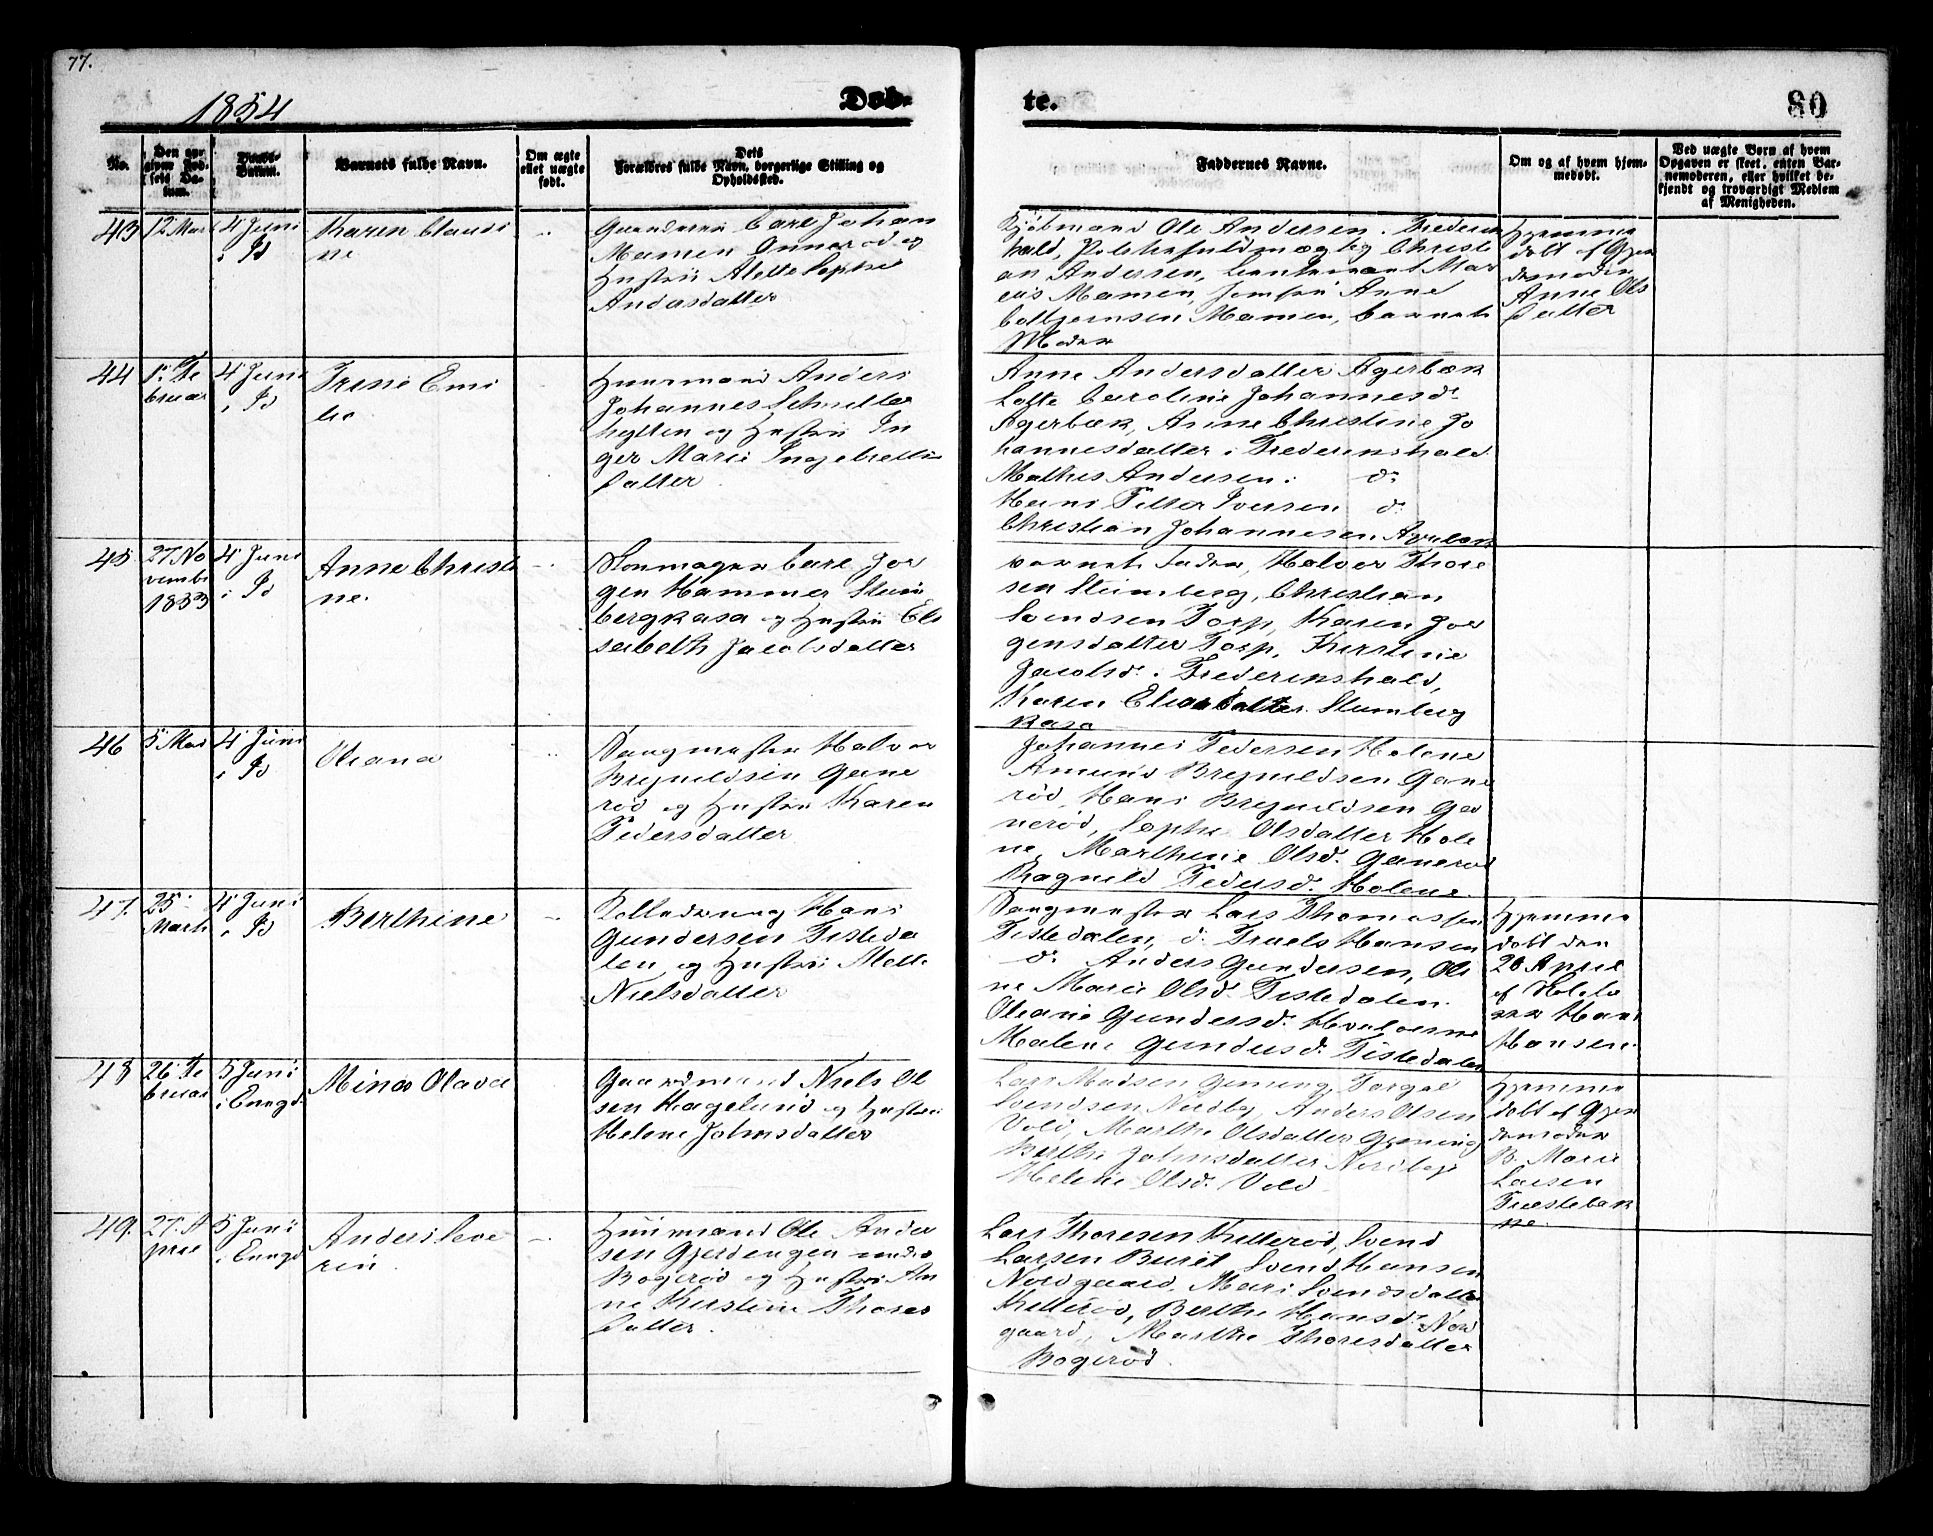 77.
1854
Døb-
te.
80
No.
Den opgivne Fødsels Datum.
Daabs-Datum.
Barnets fulde Navn.
Om ægte
ellet uægte
født.
Dets
Forældres fulde Navn, borgerlige Stilling og
Opholdssted.
Faddernes Navne.
Om og af hvem hjem-
medøbt.
Ved uægte Børn af hvem
Opgaven er skeet, enten Bar-
nemoderen, eller hvilket be-
kjendt og troværdigt Medlem
af Menigheden.
43
12 Mai
4 Juni
i Id
Karen Claudi
ne
Carl Johan
Mamen Onnerød og
Hustru Alette Sophie
Andasdatter
Kjøbmand Ole Andersen. Frederiks
hald, Politiefuldmægtig Christi
an Andersen, Leutenant Mar
cus Mamen, Jomfru Anne
Colbjørnsen Mamen, Barnets
Moder
Hjemme
døbt af Gjor
demoder
Anne Ols
datter
44
1. Fe
bruar
4 Juni
i Id
Irene Emi
lie
Huusmand Anders
Johannesen
og Hustru In
ger Marie Ingebretts
datter
Anne Andersdatter Agerbæk
Lotte Caroline Johannesd.
Agerbæk, Anne Christine Jo
hannesdatter i Frederikshald
Mathis Andersen. do
Hans Petter Iversen do
Christian Johannesen Agerbæk
45
27. No
vembr
1853
4 Juni
i Id
Anne Christi
ne.
Carl Jør
gen Hammer Stein
bergkasa og Hustru Eli
sabeth Jacobsdatter
Barnets Fader, Halvor Thore
sen Steinberg, Christian
Svendsen Torp, Karen Jør
gensdatter Torp, Kirstine
Jacobsd. Frederikshald,
Karen Eliasdatter Steinberg
kasa
46
5 Mai
4 Juni
i Id
Oleana
Saugmester Halvor
Brynildsen Gane
rød og Hustru Karen
Pedersdatter
Johannes Pedersen Holene
Amund Brynildsen Gane
rød, Hans Brynildsen Ga
nerød, Sophie Olsdatter Hole
ne, Marthine Olsd. Ganerød
Ragnild Pedersd. Holene.
47.
25.
Marts
4 Juni
i Id
Berthine
Hans
Gundersen Tisteda
len og Hustru Mette
Nielsdatter
Saugmester Lars Thomassen
Tistedalen, do Truels Hansen
do Anders Gundersen, Oli
ne Marie Olsd. Tistedalen.
Oleane Gundersd.
Malene Gundersd. Tistedalen
Hjemme
døbt den
20 April
af Skolelæ
rer Hans
Hansen.
48
26. Fe
bruar
5 Juni
i Enngd.
Mina Olava
Gaardmand Niels Ol
sen Hagelund og Hustru
Helene Johnsdatter
Lars Madsen Grening, Torgal
Svendsen Nordby, Anders Olsen
Vold, Marthe Olsdatter Grening
Berthe Johnsdatter Nordby,
Helene Olsd. Vold
Hjemme
døbt af Gjor
demoder
B. Marie
Larsen
Præstebak
ke.
49.
27. A
pril
5 Juni
i Enngd
Anders Seve
rin.
Huusmand Ole Ander
sen Gjerdengen under
Bogerød og Hustru An
ne Kirstine Thores
datter.
Lars Thoresen Killerød, Svend
Larsen Buret, Svend Hansen
Nordgaard, Mari Svendsdatter
Killerød, Berthe Hansd. Nord
gaard, Marthe Thoresdatter
Bogerød.